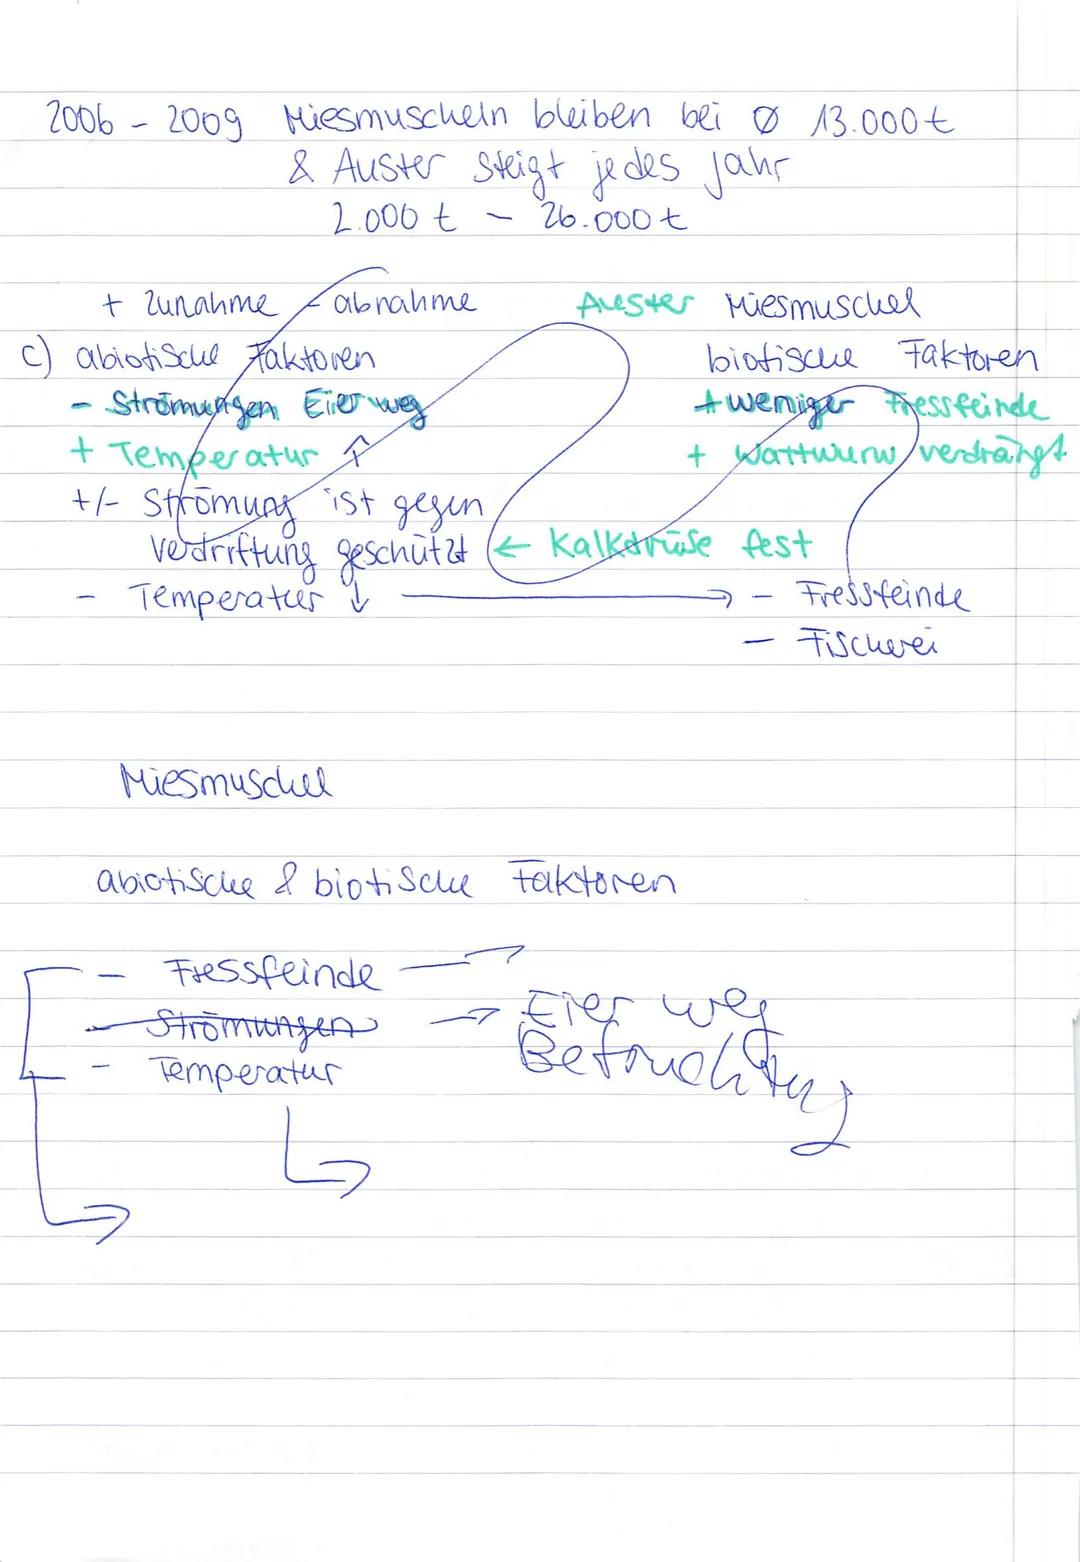 2006 - 2009 Miesmuscheln bleiben bei ø 13.000 t
& Auster steigt jedes Jahr
2.000 t - 26.000 t
+ Zunahme - abnahme Auster Miesmuschel
c) abiotische Faktoren biotische Faktoren
- Strömungen Eier weg + weniger Fressfeinde
+ Temperatur ↑ + Wattwurm verdrängt
+/- Strömung ist gegen
verdriftung geschützt ← Kalkdrüse fest
- Temperatur ↓ → - Fressfeinde
- Fischerei
Miesmuschel
abiotische & biotische Faktoren
- Fressfeinde →
- Strömungen → Eier weg
Befruchtung
- Temperatur